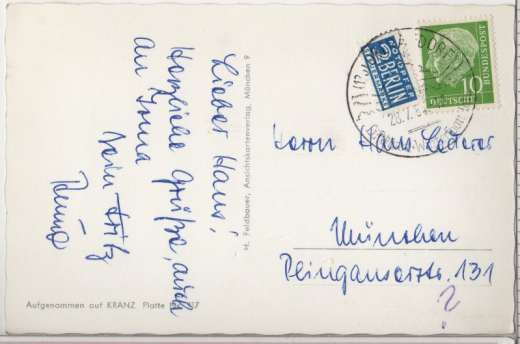 Lieber Hans!
Herzliche Grüße, auch
an Irma
Dein Fritz
H. Feldbauer, Ansichtskartenverlag, München 9
Aufgenommen auf KRANZ Platte
NOTOPFER
2 BERLIN
STEUERMARKE
DEUTSCHE
BUNDESPOST
10
DORF
28.7.54
Herrn Hans Lederer
München
Plinganserstr. 131
?